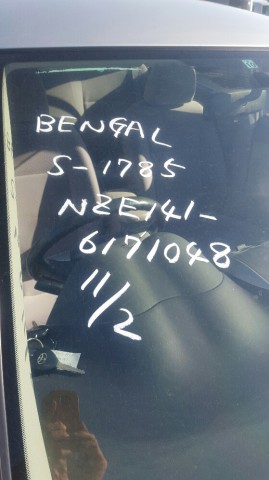 BENGAL
S-1785
NZE141-
6171048
11/2